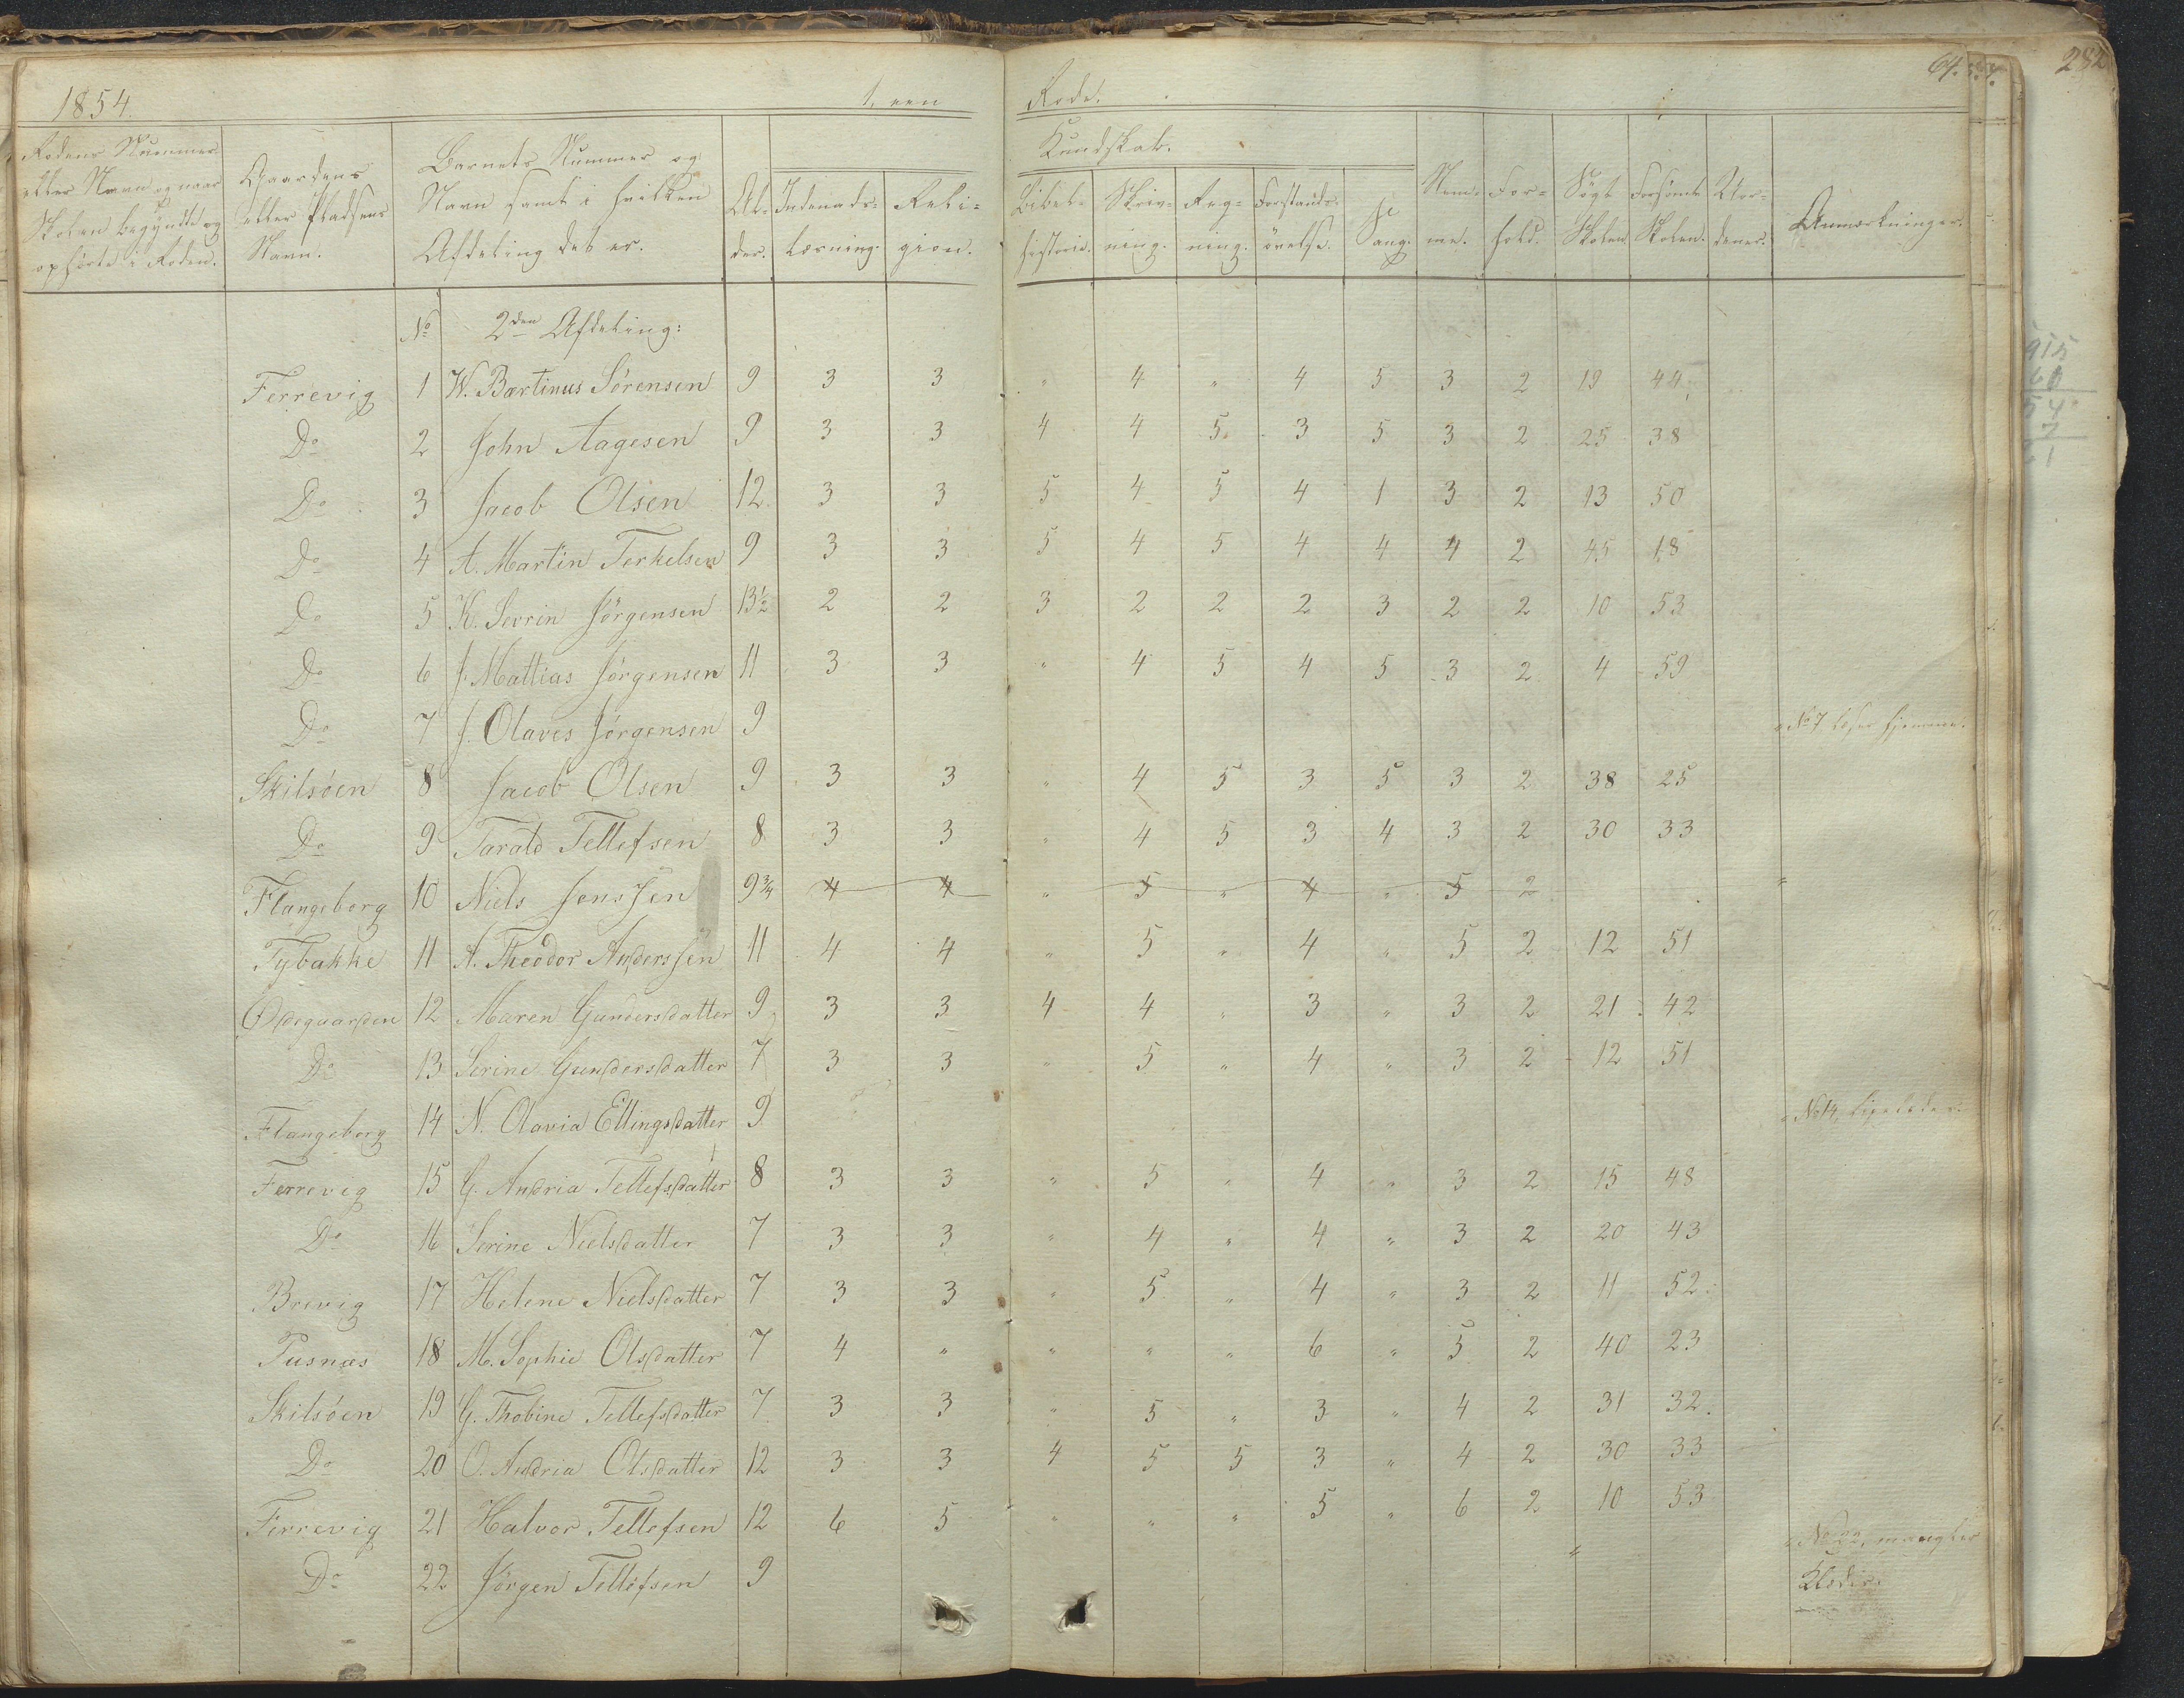 1854. 1. een Rode. 64.
282
Rodens Nummer eller Navn og naar Skolen begyndte og ophörte i Roden.
Gaardens eller Pladsens Navn.
Barnets Nummer og Navn samt i hvilken Afdeling det er.
Al-der.
Indenads-læsning.
Reli-gion.
Kundskab.
Bibel-historie.
Skriv-ning.
Reg-ning.
Forstands-övelse.
Sang.
Nem-me.
For-hold.
Sögt Skolen.
Forsömt Skolen.
Anmærkninger.
No 2den Afdeling:
Ferrevig 1 W. Bartinus Sörensen 9 3 3 " 4 " 4 5 3 2 19 44
Do 2 John Aagesen 9 3 3 4 4 5 3 5 3 2 25 38
Do 3 Jacob Olsen 12 3 3 5 4 5 4 1 3 2 13 50
Do 4 A. Martin Terkelsen 9 3 3 5 4 5 4 4 4 2 45 18
Do 5 K. Sevrin Jörgensen 13½ 2 2 3 2 2 2 3 2 2 10 53
Do 6 J. Mattias Jörgensen 11 3 3 " 4 5 4 5 3 2 4 59
Do 7 J. Olaves Jörgensen 9 No 7, læser hjemme.
Skilsöen 8 Jacob Olsen 9 3 3 " 4 5 3 5 3 2 38 25
Do 9 Tarald Tellefsen 8 3 3 " 4 5 3 4 3 2 30 33
Flangeborg 10 Niels Jenssen 9¾ 4 4 " 5 " 4 " 5 2 "
Tybakke 11 A. Theodor Anderssen 11 4 4 " 5 " 4 " 5 2 12 51
Ödegaarden 12 Maren Gundersdatter 9 3 3 4 4 " 3 " 3 2 21 42
Do 13 Serine Gundersdatter 7 3 3 " 5 " 4 " 3 2 12 51
Flangeborg 14 N. Olavia Ellingsdatter 9 No 14, ligeledes.
Ferrevig 15 G. Andria Tellefsdatter 8 3 3 " 5 " 4 " 3 2 15 48
Do 16 Serine Nielsdatter 7 3 3 " 4 " 4 " 3 2 20 43
Brevig 17 Helene Nielsdatter 7 3 3 " 5 " 4 " 3 2 11 52
Pusnæs 18 M. Sophie Olsdatter 7 4 " " " " 6 " 5 2 40 23
Skilsöen 19 G. Thobine Tellefsdatter 7 3 3 " 5 " 3 " 4 2 31 32
Do 20 O. Andria Olsdatter 12 3 3 4 5 5 3 " 4 2 30 33
Ferrevig 21 Halvor Tellefsen 12 6 5 " " " 5 " 6 2 10 53
Do 22 Jörgen Tellefsen 9 " No 22, mangler
Klæder.